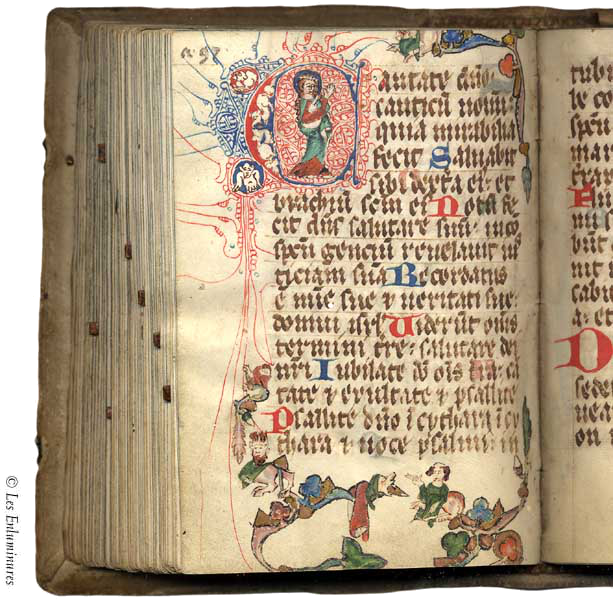 a 97
Cantate dño
canticū nouū
quia mirabilia
fecit Saluabit
sibi dextᵃ eiꝰ et
brachiū scm̄ eiꝰ Notū fe
cit dñs salutare suū in cō
spcū genciū reuelauit ius
ticiam suā Recordatus
ē mīe sue ⁊ ueritati sue
domui isrl̄ Uiderūt oms̄
termini tre salutare dei
nr̄i Iubilate dō oīs tra cā
tate ⁊ exultate ⁊ psallite
Psallite dño ī cythara ī cy
thara ⁊ uoce psalmi in
tube
le co
spen
sede
on
© Les Enluminures